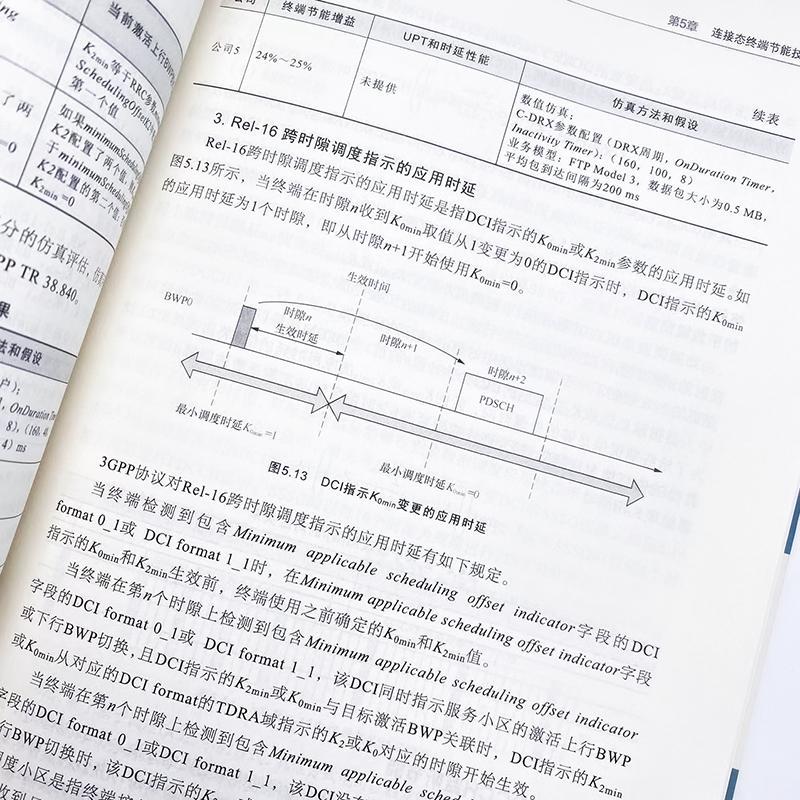 第5章 连接态终端节能技
续表
公司 终端节能增益 UPT和时延性能 仿真方法和假设
公司5 24%～25% 未提供 数值仿真：
C-DRX参数配置（DRX周期，OnDuration Timer，
Inactivity Timer）：(160，100，8)
业务模型：FTP Model 3，数据包大小为0.5 MB，
平均包到达间隔为200 ms
3. Rel-16 跨时隙调度指示的应用时延
Rel-16跨时隙调度指示的应用时延是指DCI指示的K0min或K2min参数的应用时延。如
图5.13所示，当终端在时隙n收到K0min取值从1变更为0的DCI指示时，DCI指示的K0min
的应用时延为1个时隙，即从时隙n+1开始使用K0min=0。
生效时间
BWP0
时隙n
生效时延
时隙n+1
时隙n+2
PDSCH
最小调度时延K0min=1
最小调度时延K0min=0
图5.13 DCI指示K0min变更的应用时延
3GPP协议对Rel-16跨时隙调度指示的应用时延有如下规定。
当终端检测到包含Minimum applicable scheduling offset indicator字段的DCI
format 0_1或 DCI format 1_1时，在Minimum applicable scheduling offset indicator字段
指示的K0min和K2min生效前，终端使用之前确定的K0min和K2min值。
当终端在第n个时隙上检测到包含Minimum applicable scheduling offset indicator
字段的DCI format 0_1或 DCI format 1_1，该DCI同时指示服务小区的激活上行BWP
或下行BWP切换，且DCI指示的K2min或K0min与目标激活BWP关联时，DCI指示的K2min
或K0min从对应的DCI format的TDRA域指示的K2或K0对应的时隙开始生效。
当终端在第n个时隙上检测到包含Minimum applicable
字段的DCI format 0_1或DCI format 1_1，该DCI没有
行BWP切换时，该DCI指示的K0min
度小区是指终端
收到
当前激活上行BWP
K2min等于RRC参数
SchedulingOffset
第一个值
如果minimumScheduling
K2配置了两个值，
于minimumScheduling
K2配置的第二个值，
K2min=0
了两
=0
分的仿真评估，仿真
PP TR 38.840。
果
法和假设
户）；
，OnDuration
8），（160，40
4）ms